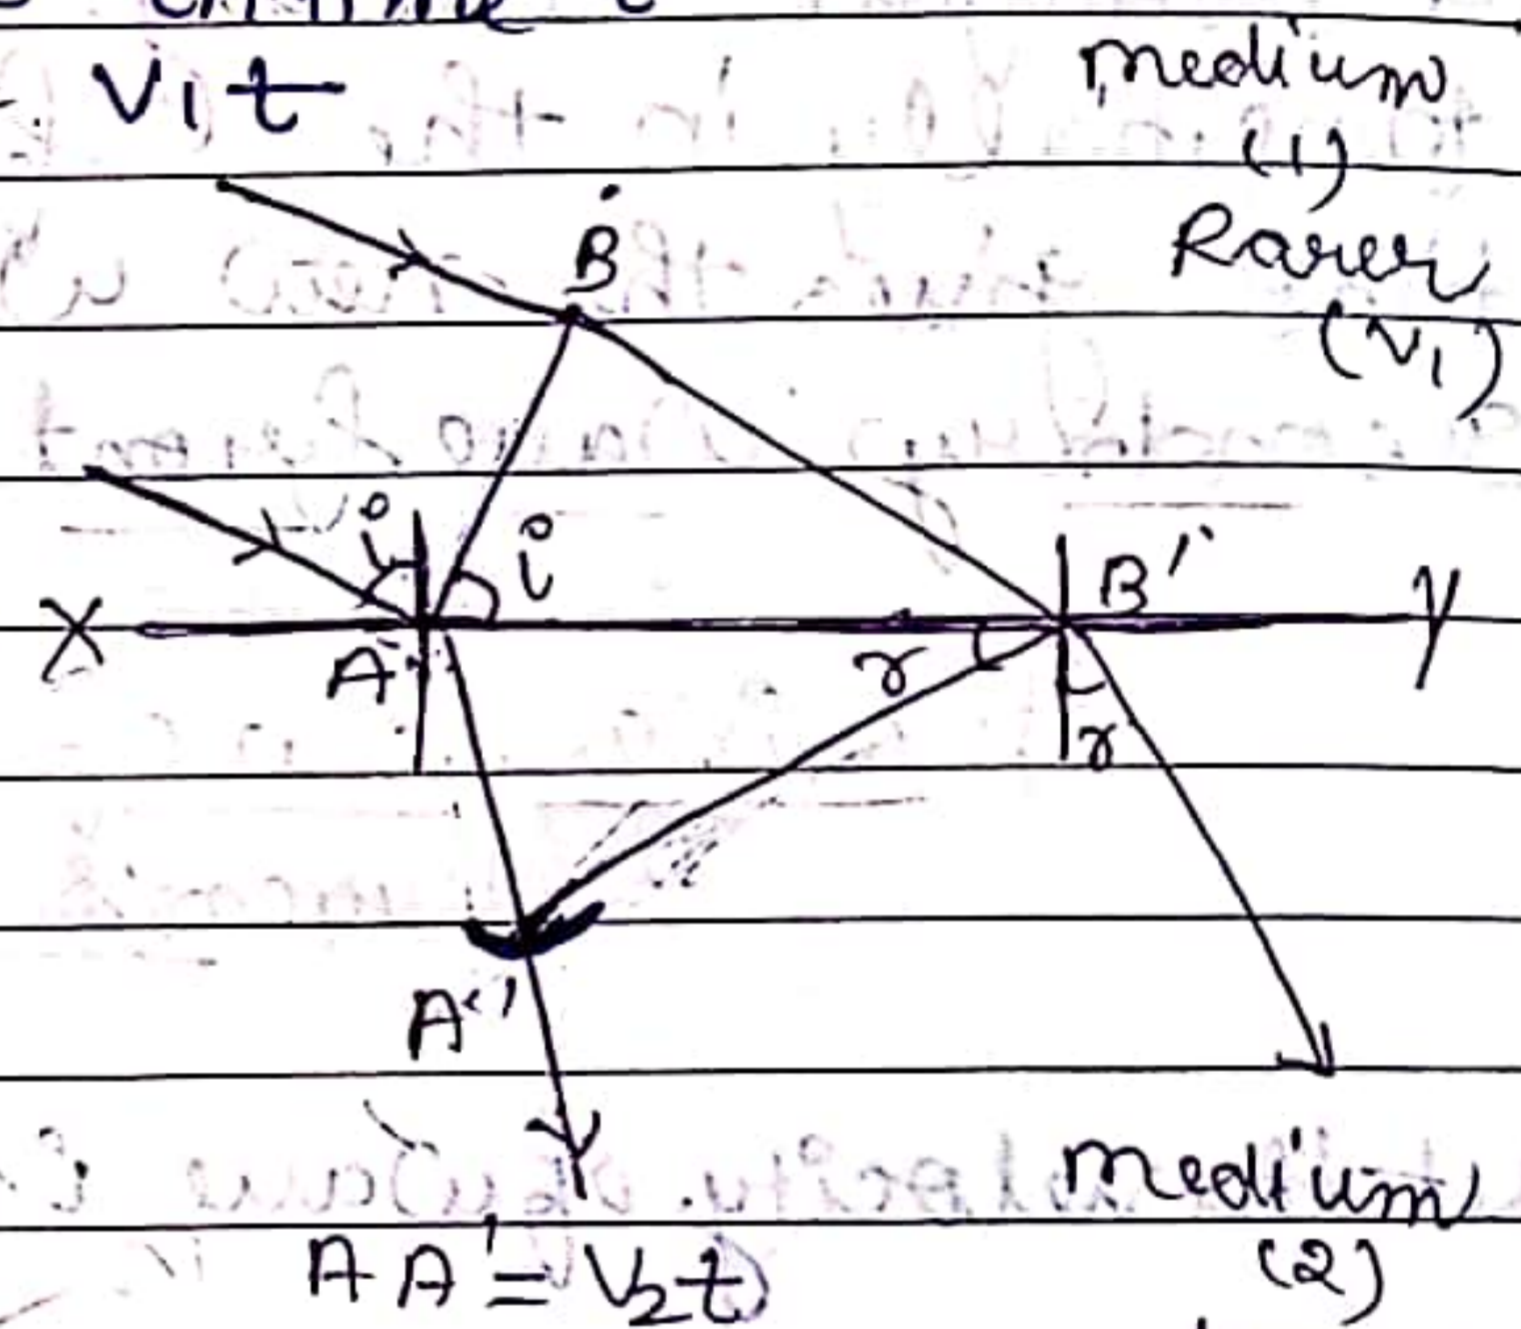 V1t
medium
(1)
Rarer
(V1)
B
i
i
X
A
r
B'
Y
r
A'
medium
(2)
AA' = V2t